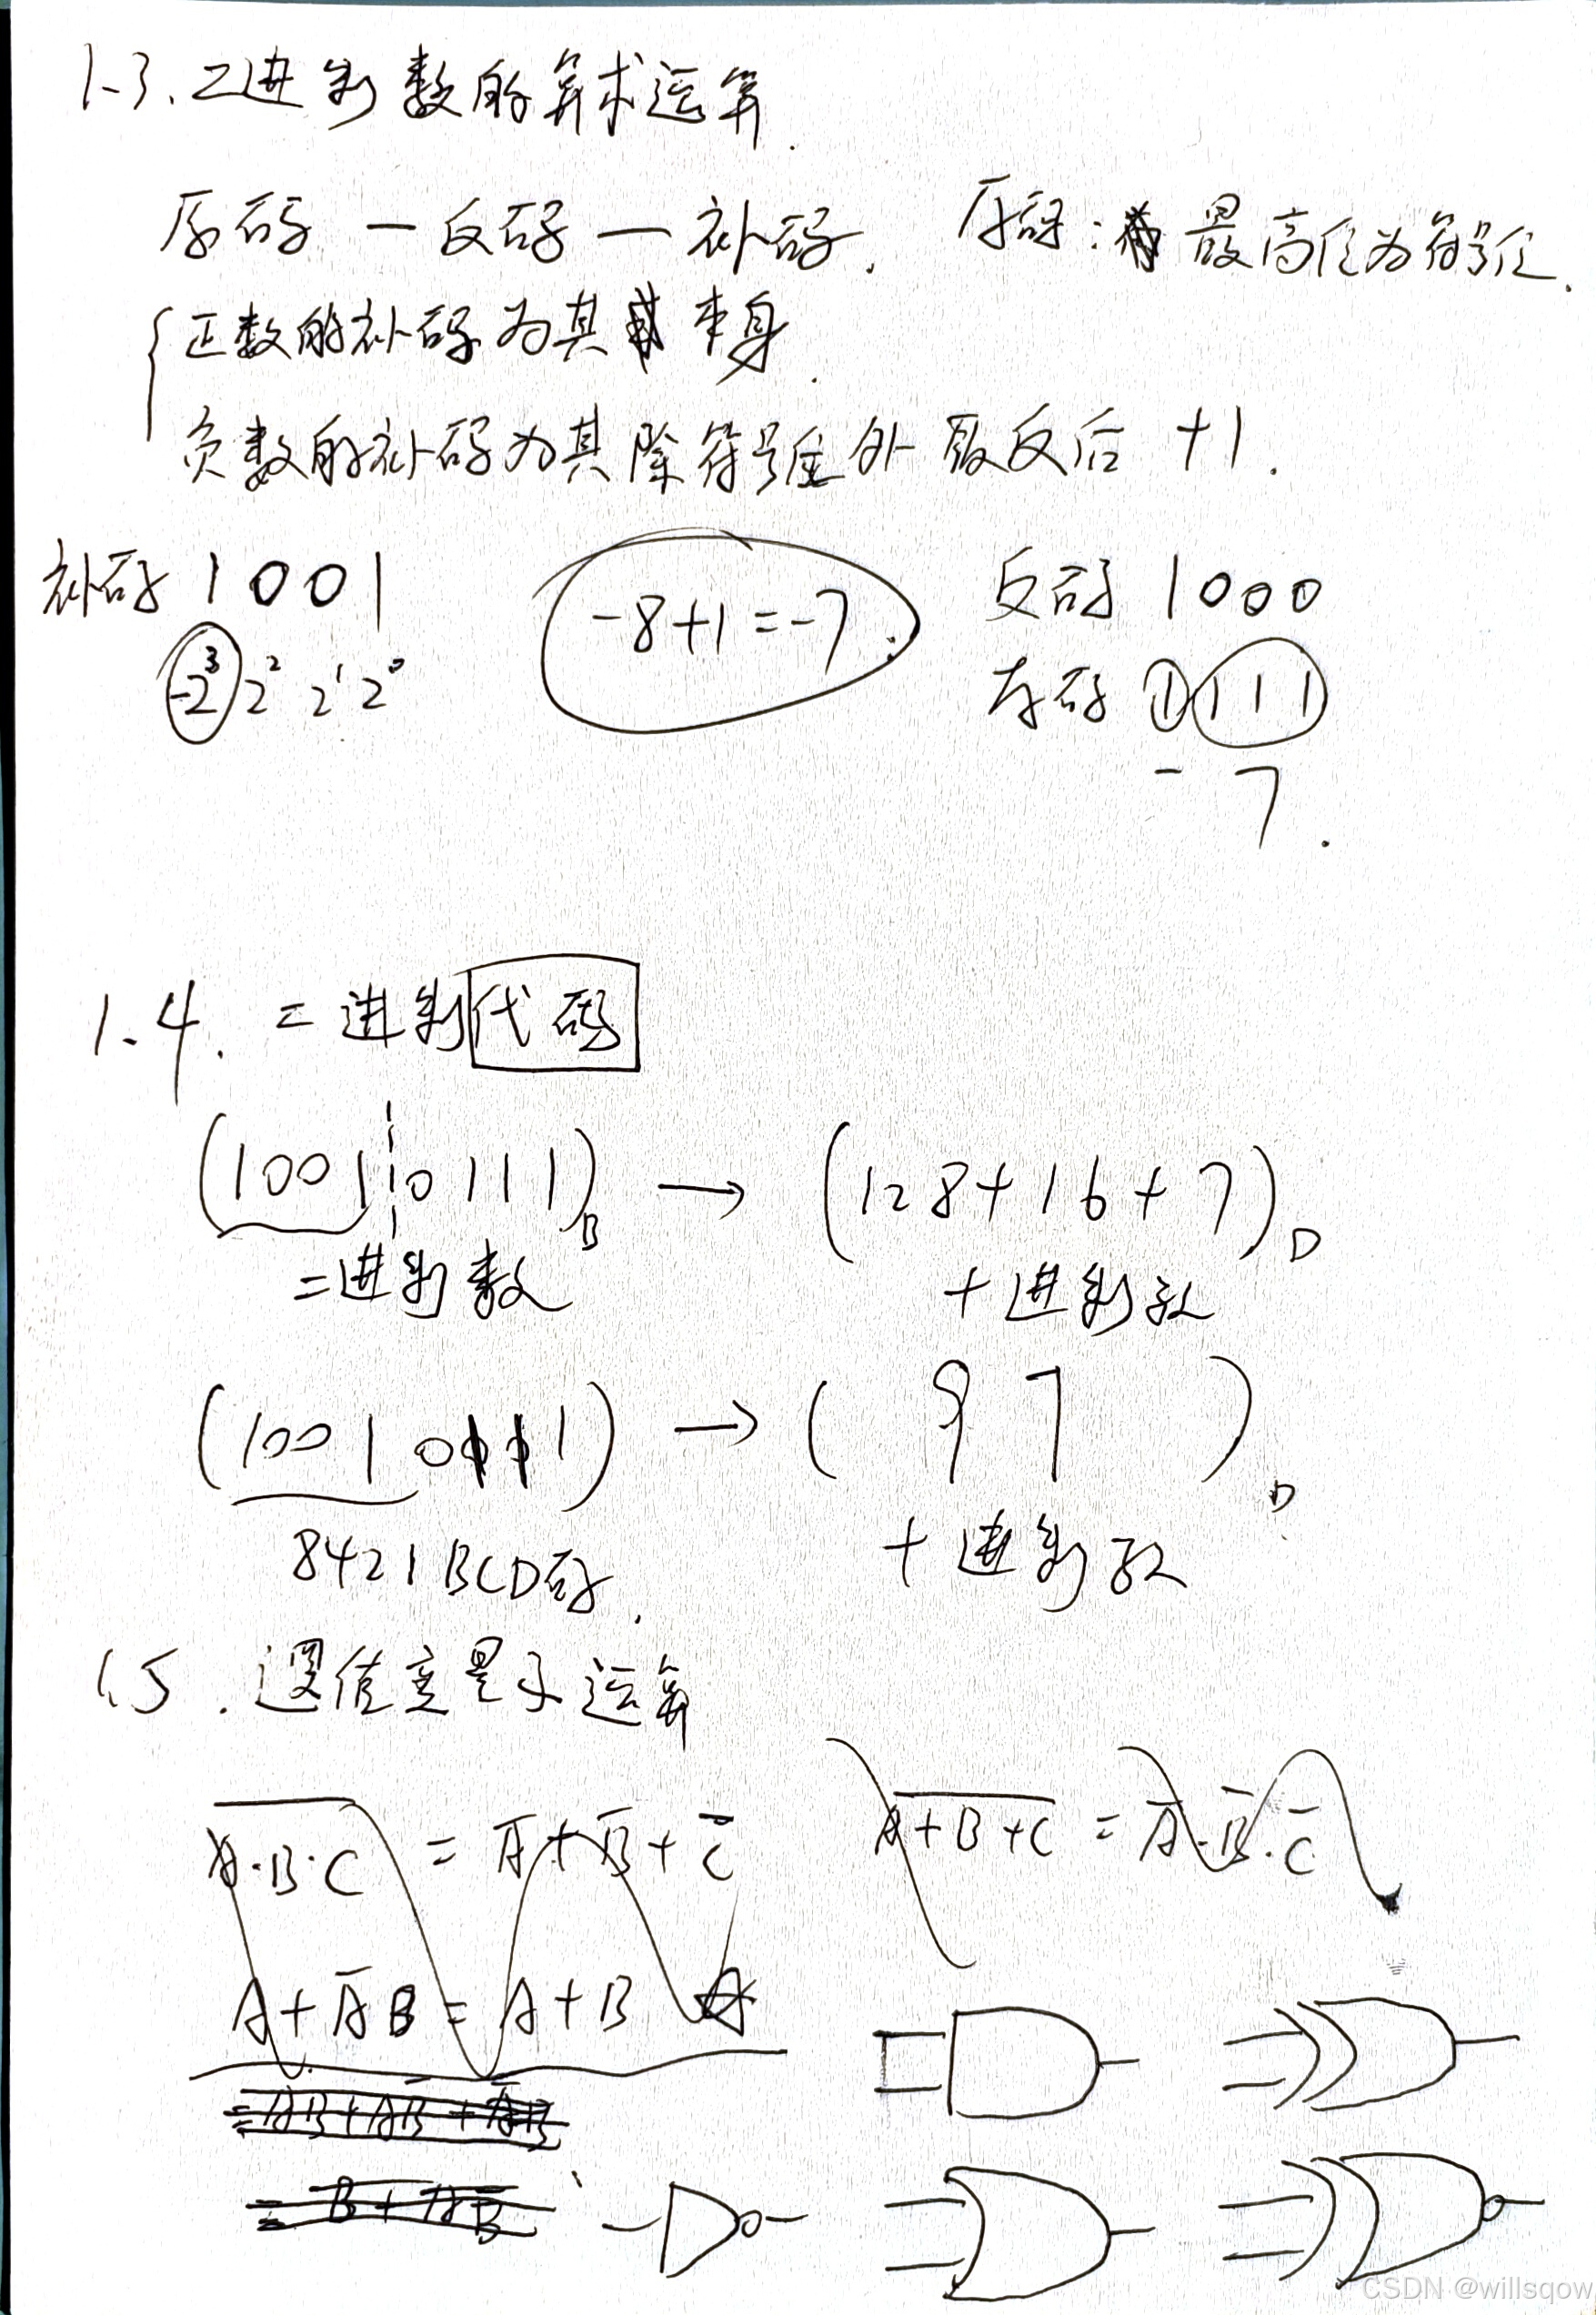 1.3. 二进制数的算术运算.
原码 — 反码 — 补码. 原码: 最高位为符号位.
正数的补码为其本身.
负数的补码为其除符号位外取反后 +1.
补码 1001 -8+1=-7. 反码 1000
-2³ 2² 2¹ 2⁰ 原码 1111
- 7.
1.4. 二进制代码
(10010111)B → (128+16+7)D
二进制数 十进制数
(10010111) → ( 9 7 )D
8421BCD码. 十进制数
1.5. 逻辑变量与运算
\overline{A·B·C} = \overline{A}+\overline{B}+\overline{C} \overline{A+B+C} = \overline{A}·\overline{B}·\overline{C}
A+\overline{A}B = A+B
CSDN @willsqow